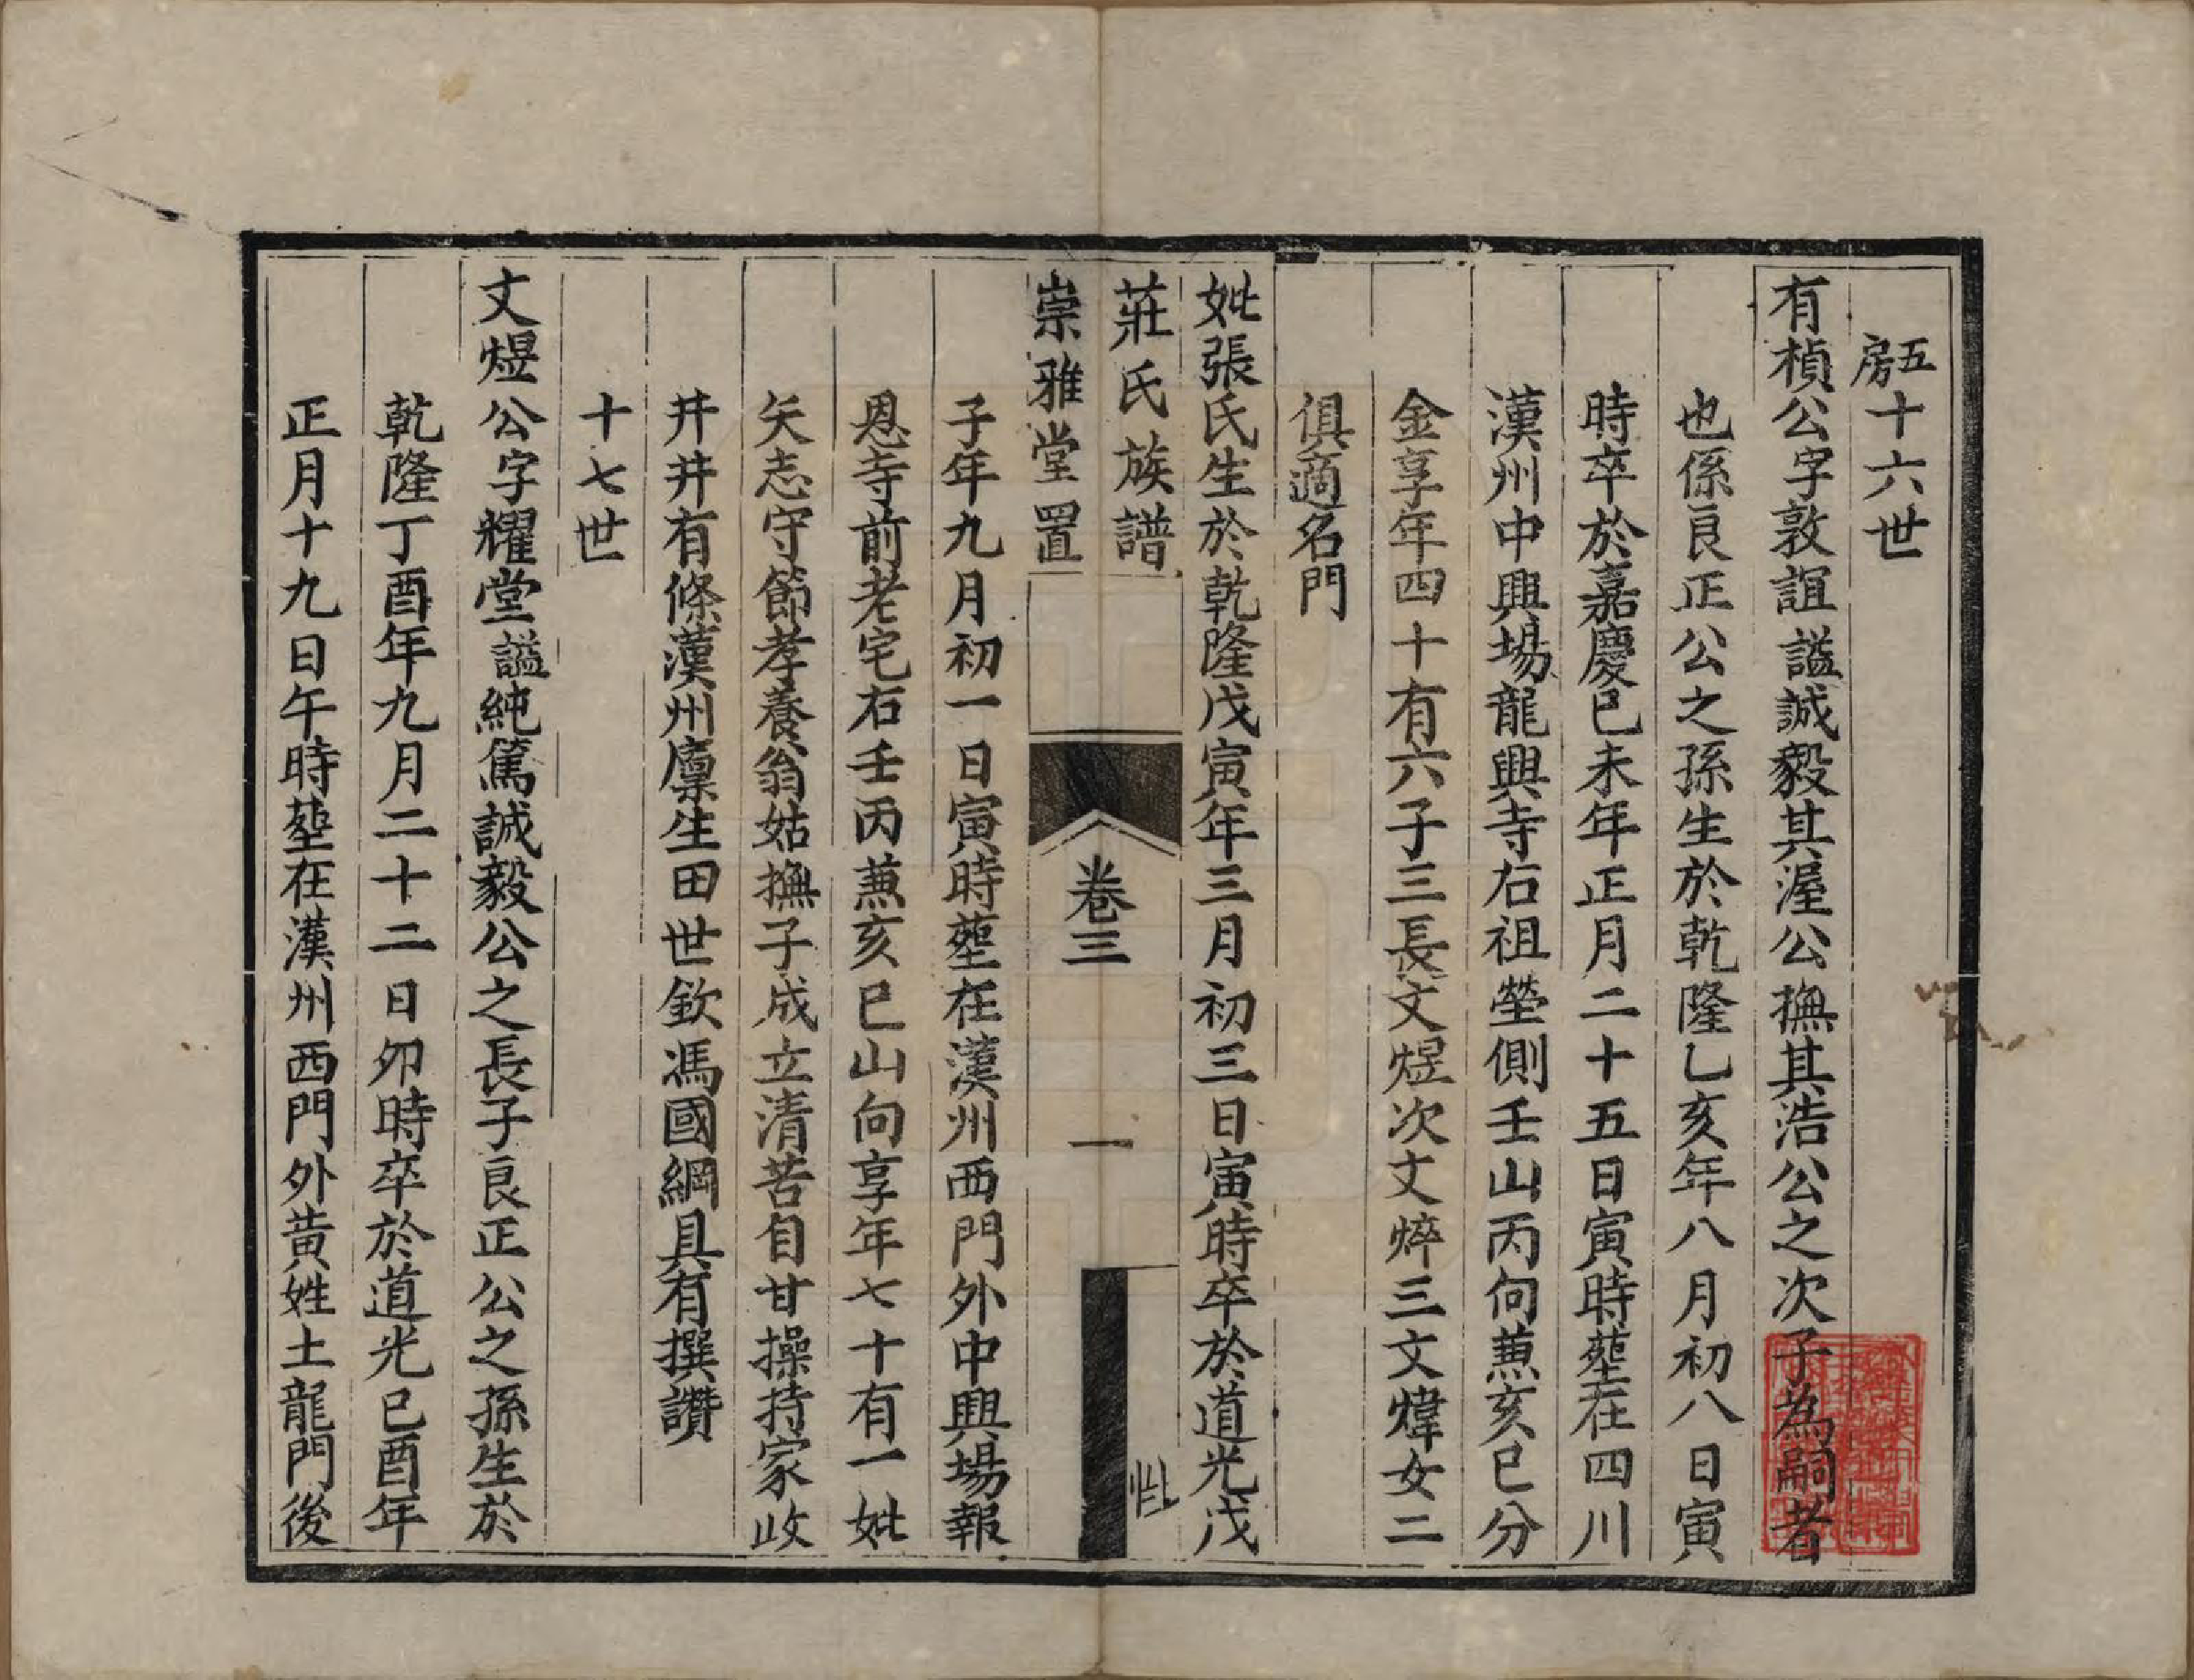 五房十六世
有楨公字敦誼謚誠毅其渥公撫其浩公之次子為嗣者
也係良正公之孫生於乾隆乙亥年八月初八日寅
時卒於嘉慶己未年正月二十五日寅時塟在四川
漢州中興場龍興寺右祖塋側壬山丙向蒹亥巳分
金享年四十有六子三長文煜次文焠三文煒女二
俱適名門
妣張氏生於乾隆戊寅年三月初三日寅時卒於道光戊
莊氏族譜
卷三
一
崇雅堂置
子年九月初一日寅時塟在漢州西門外中興場報
恩寺前老宅右壬丙蒹亥巳山向享年七十有一妣
矢志守節孝養翁姑撫子成立清苦自甘操持家政
井井有條漢州廪生田世欽馮國綱具有撰讚
十七世
文煜公字耀堂謚純篤誠毅公之長子良正公之孫生於
乾隆丁酉年九月二十二日卯時卒於道光己酉年
正月十九日午時塟在漢州西門外黄姓土龍門後